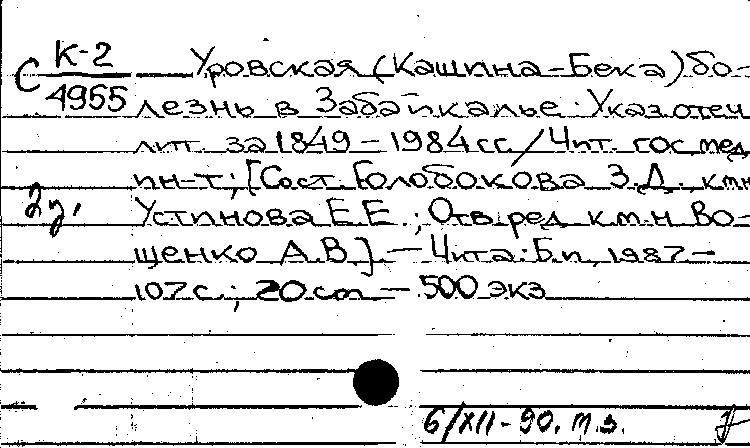 С К-2 Уровская (Кашина-Бека) бо-
4955 лезнь в Забайкалье. Указ. отеч
лит. за 1849 - 1984 гг. / Чит. гос мед
ин-т; [Сост. Голобокова З.Д., к.м.н
Устинова Е.Е.; Отв. ред к.м.н Во-
щенко А.В]. - Чита: Б.и, 1987 -
107 с.; 20 см - 500 экз
6/XII-90. т.з.